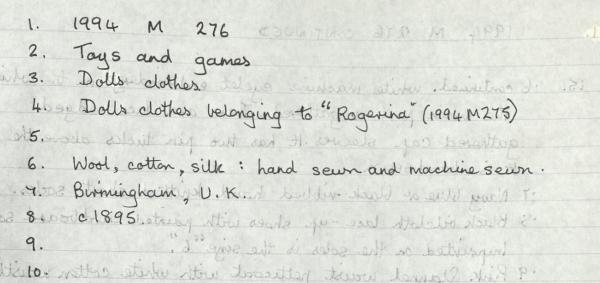 1. 1994 M 276
2. Toys and games
3. Dolls clothes
4. Dolls clothes belonging to "Rogerina", (1994 M275)
5.
6. Wool, cotton, silk : hand sewn and machine sewn.
7. Birmingham, U.K.
8. c1895.
9.
10.